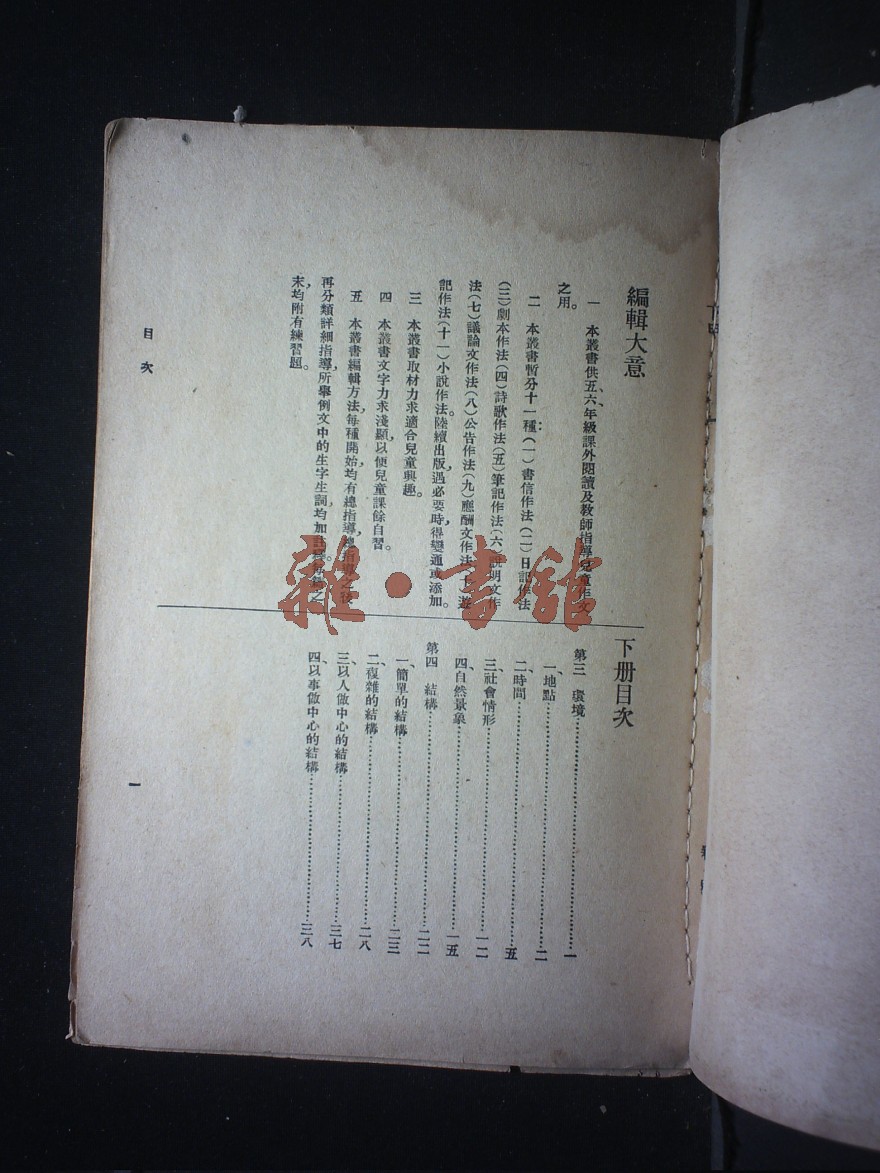 編輯大意
一　本叢書供五、六年級課外閱讀及教師指導兒童作文
之用。
二　本叢書暫分十一種：(一)書信作法(二)日記作法
(三)劇本作法(四)詩歌作法(五)筆記作法(六)說明文作
法(七)議論文作法(八)公告作法(九)應酬文作法(十)遊
記作法(十一)小說作法。陸續出版，遇必要時得變通或添加。
三　本叢書取材力求適合兒童興趣。
四　本叢書文字力求淺顯，以便兒童課餘自習。
五　本叢書編輯方法每種開始均有總指導，總指導之後
再分類詳細指導，所舉例文中的生字生詞，均加註釋，每類之
末，均附有練習題。
下册目次
第三　環境……一
一、地點……二
二、時間……五
三、社會情形……一二
四、自然景象……一五
第四　結構……二二
一、簡單的結構……二三
二、複雜的結構……二八
三、以人做中心的結構……三七
四、以事做中心的結構……三八
目次
一
雜·書館